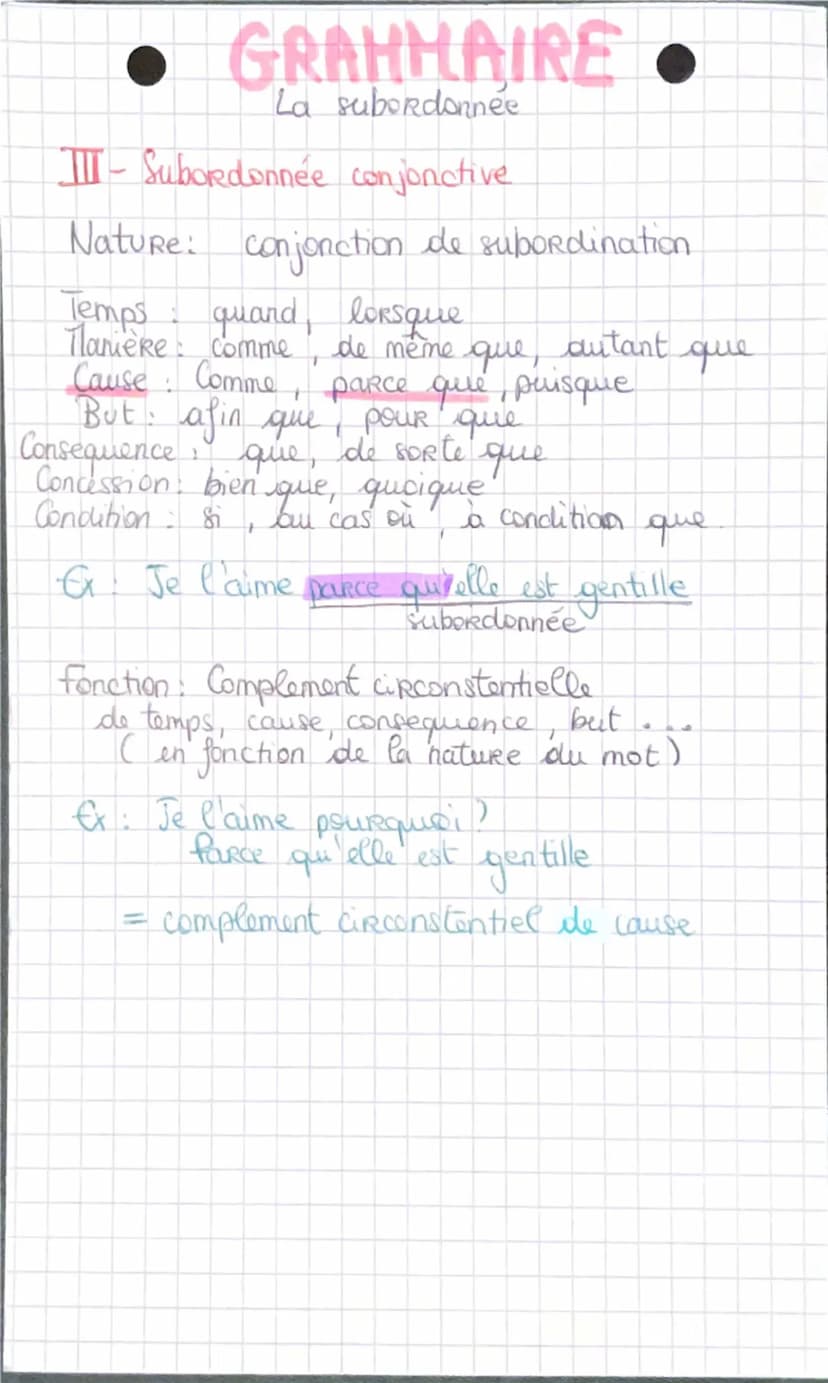 GRAMMAIRE
La subordonnée
III - Subordonnée conjonctive
Nature : conjonction de subordination
Temps : quand, lorsque
Manière : comme, de même que, autant que
Cause : Comme, parce que, puisque
But : afin que, pour que
Consequence : que, de sorte que
Concession : bien que, quoique
Condition : si, au cas où, à condition que
Ex : Je l'aime parce qu'elle est gentille
subordonnée
Fonction : Complement circonstentielle
de temps, cause, consequence, but ...
(en fonction de la nature du mot)
Ex : Je l'aime pourquoi ?
Parce qu'elle est gentille
= complement circonstentiel de cause